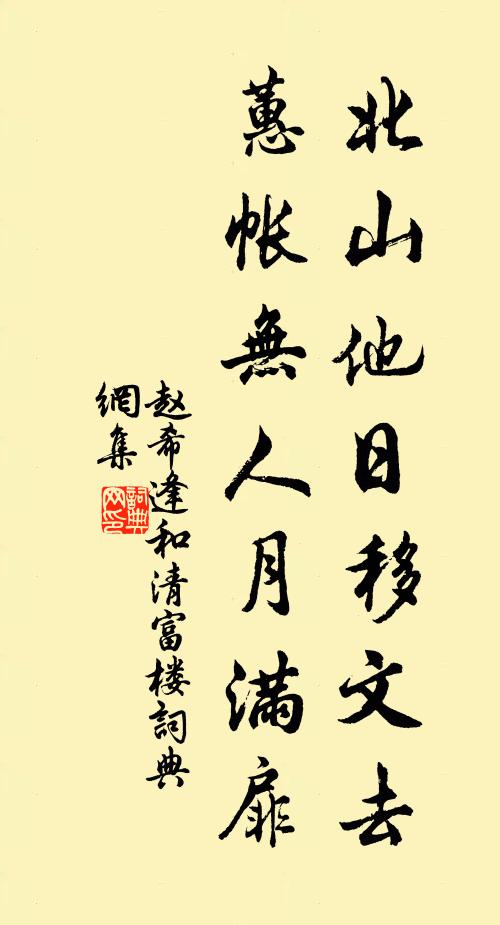 北山他日移文去
蕙帐無人月滿扉
赵希逢和清富楼詞典
網集
詞典
网印